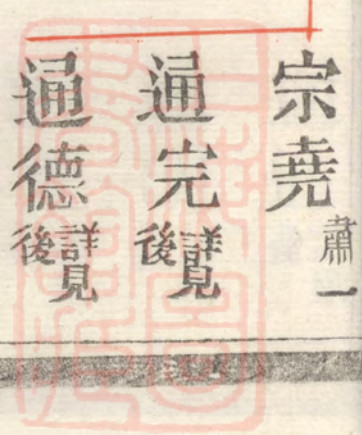 宗堯肅一
通完詳見後
通德詳見後